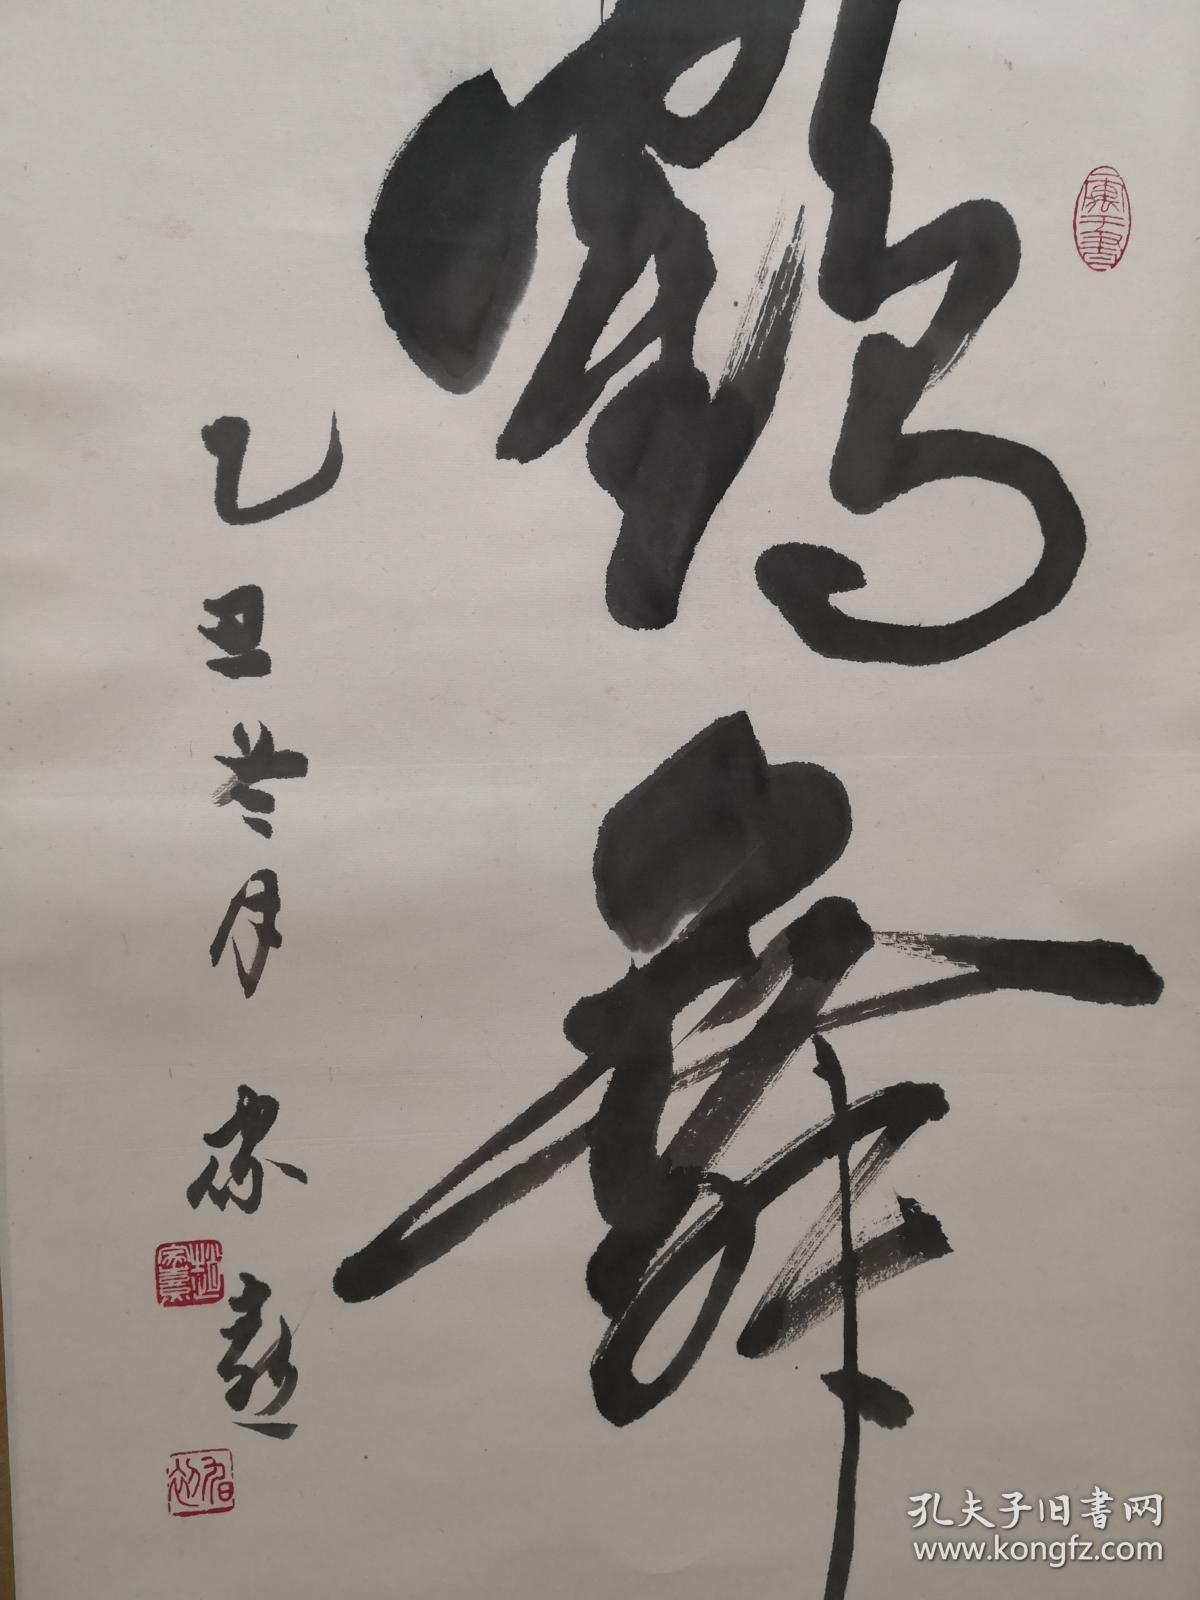 鹤舞
乙丑芒月
家熹
赵家熹
孔夫子旧书网
www.kongfz.com